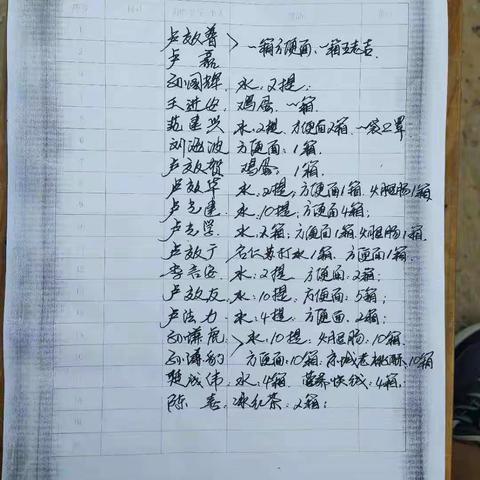 卢效普 > 一箱方便面、一箱王老吉
卢磊
孙国辉, 水:2提;
王进安, 鸡蛋:一箱
范建兴 水:2提, 方便面2箱, 一袋口罩
刘海波 方便面:1箱,
卢效贺 鸡蛋:1箱,
卢效华 水:2提; 方便面1箱, 火腿肠1箱
卢光建. 水:10提; 方便面4箱;
卢光学. 水:2箱; 方便面1箱, 火腿肠1箱.
卢效广 名仁苏打水1箱, 方便面1箱.
李吉安, 水:2提 方便面:2箱;
卢效友, 水:10提, 方便面:5箱;
卢法力, 水:4提, 方便面:2箱;
孙谦虎 > 水:10提, 火腿肠:10箱,
孙涛豹 方便面:10箱, 京城老桃酥:10箱
楚成伟 水:4箱, 营养快线:4箱,
陈 冰红茶:2箱;